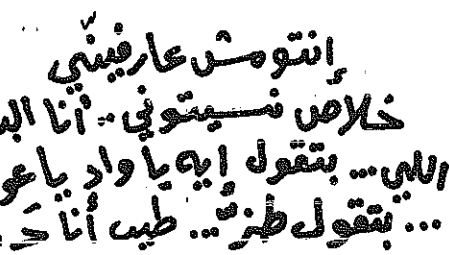 إنتو مش عارفينّي
خلاص نسيتوني .. أنا
اللي ... بتقول إيه يا واد يا
... بتقول طز ؟ .. طيب أنا